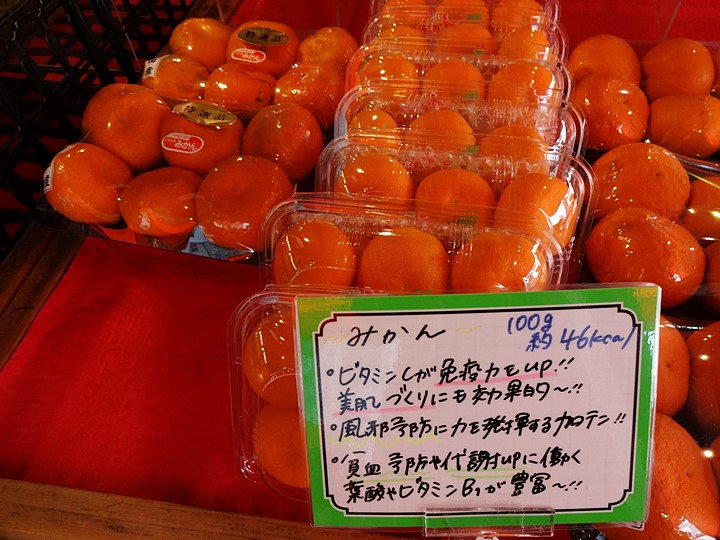 特選品
特選品
みかん
特選品
みかん 100g
約46kcal
・ビタミンCが免疫力もup!!
美肌づくりにも効果的~!!
・風邪予防に力を発揮するカロテン!!
・貧血予防や代謝upに働く
葉酸やビタミンB1が豊富~!!